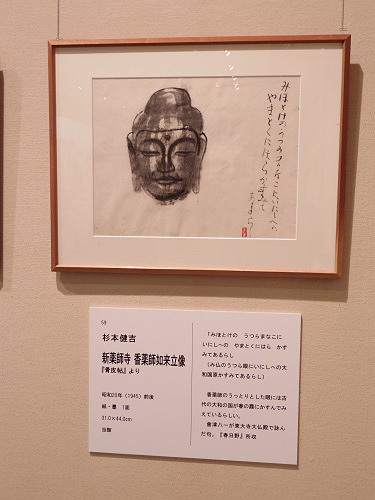 みほとけのうつらまなこにいにしへの
やまとくにはらかすみて
あるらし
59
杉本健吉
新薬師寺 香薬師如来立像
『骨皮帖』より
昭和20年（1945）前後
紙・墨　1面
31.0×44.0cm
当館
「みほとけの　うつらまなこに
いにしへの　やまとくにはら　かす
みてあるらし
（み仏のうつら眼にいにしへの大
和国原かすみてあるらし）
香薬師のうっとりとした眼には古
代の大和の国が春の霞にかすんでみ
えているらしい。
會津八一が東大寺大仏殿で詠ん
だ句。『春日野』所収